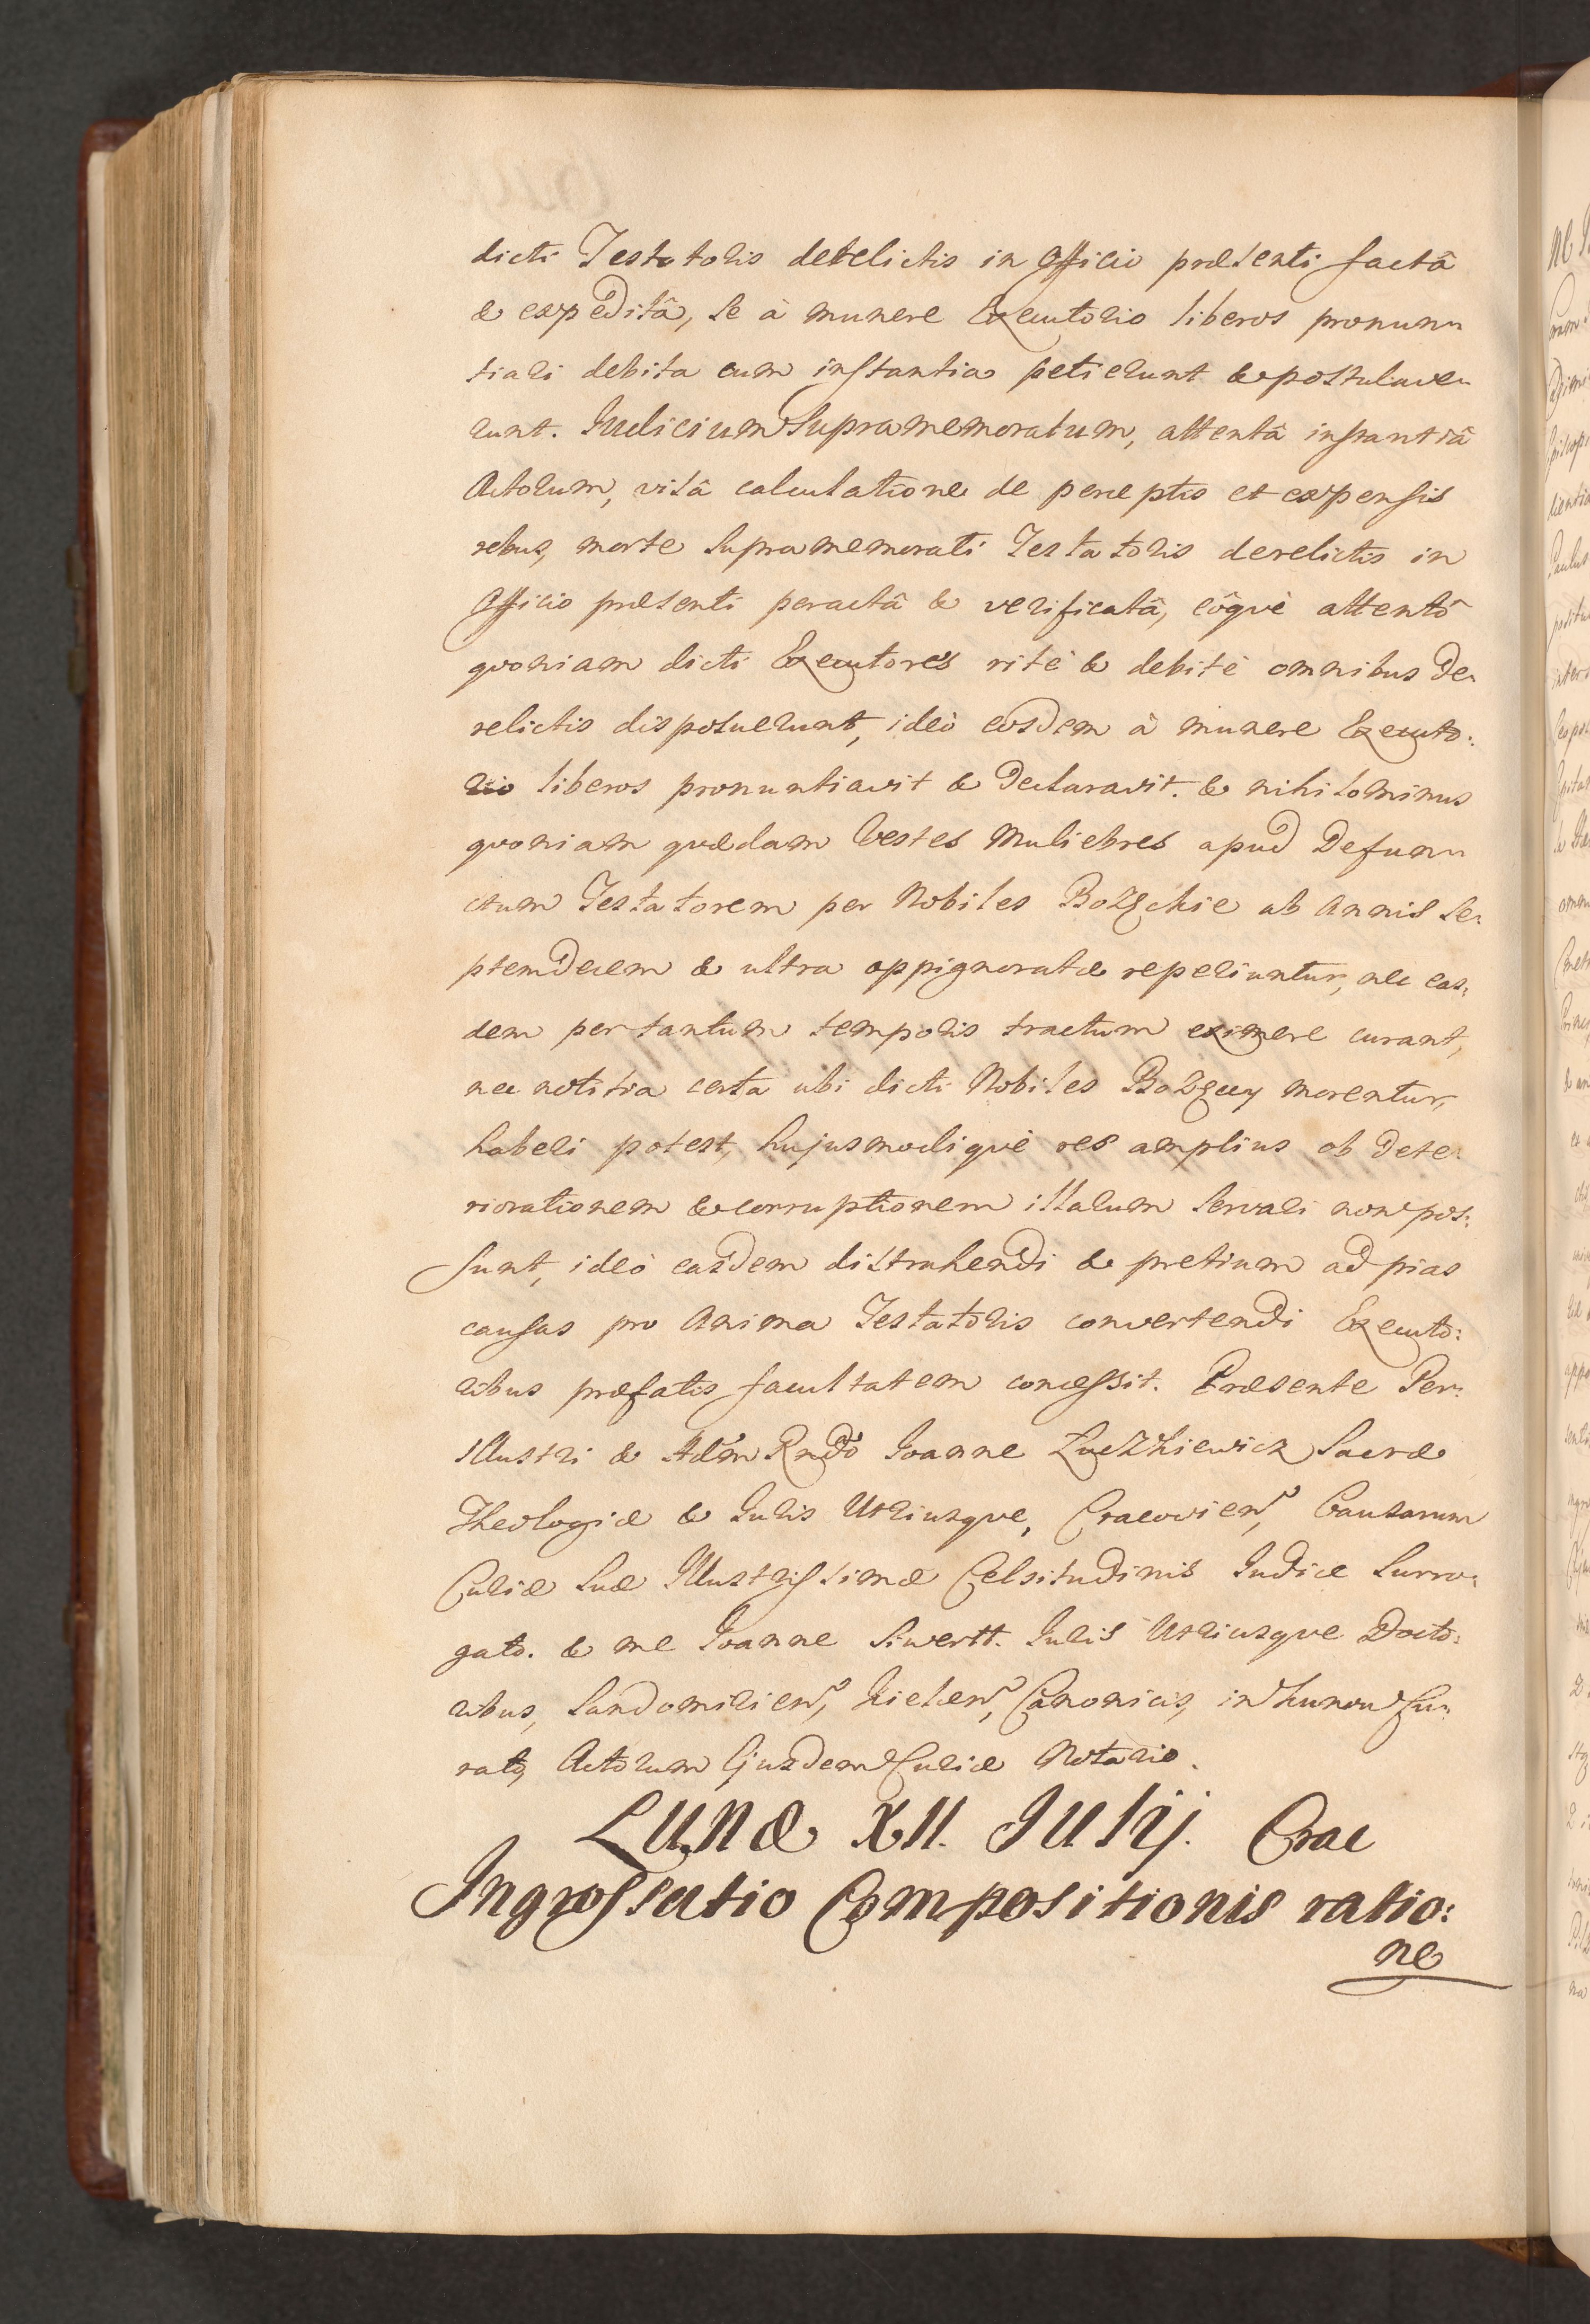 dicti Testatoris derelictis in Officio præsenti factâ
& expeditâ, se à munere Executorio liberos pronun-
tiari debita cum instantia petierunt & postulave-
runt. Iudicium Supramemoratum, attentâ instantiâ
Actorum, visâ calculatione de perceptis et expensis
rebus, morte supramemorati Testatoris derelictis in
Officio præsenti peractâ & verificatâ, eôquè attentô
quoniam dicti Executores ritè & debitè omnibus De-
relictis disposuerunt, ideò eosdem à munere Executo:
rio liberos pronuntiavit & Declaravit. & nihilominus
quoniam quædam Vestes Muliebres apud Defun-
ctum Testatorem per Nobiles Borzęckie ab Annis Se:
ptemdecem & ultra oppignoratæ reperiuntur, nec eas:
dem per tantum temporis tractum eximere curant,
nec notitia certa ubi dicti Nobiles Borzęccy morentur,
haberi potest, hujusmodiquè res amplius ob Dete:
riorationem & corruptionem illarum servari non pos:
sunt, ideò easdem distrahendi & pretium ad pias
causas pro Anima Testatoris convertendi Executo:
ribus præfatis facultatem concessit. Præsente Per:
illustri & Adm Rndo Ioanne Łuczkiewicz Sacræ
Theologiæ & Iuris Utriusque, Cracovien, Causarum
Curiæ Suæ Illustrissimæ Celsitudinis Iudice Surro:
gato. & me Ioanne Siwertt. Iuris Utriusque Docto:
ribus, Sandomirien, Kielcen, Canonicis, in hunc Iu:
rato, Actorum Ejusdem Curiæ Notario.
Lunæ XII. Iulij. Crac
Ingrossatio Compositionis ratio:
ne